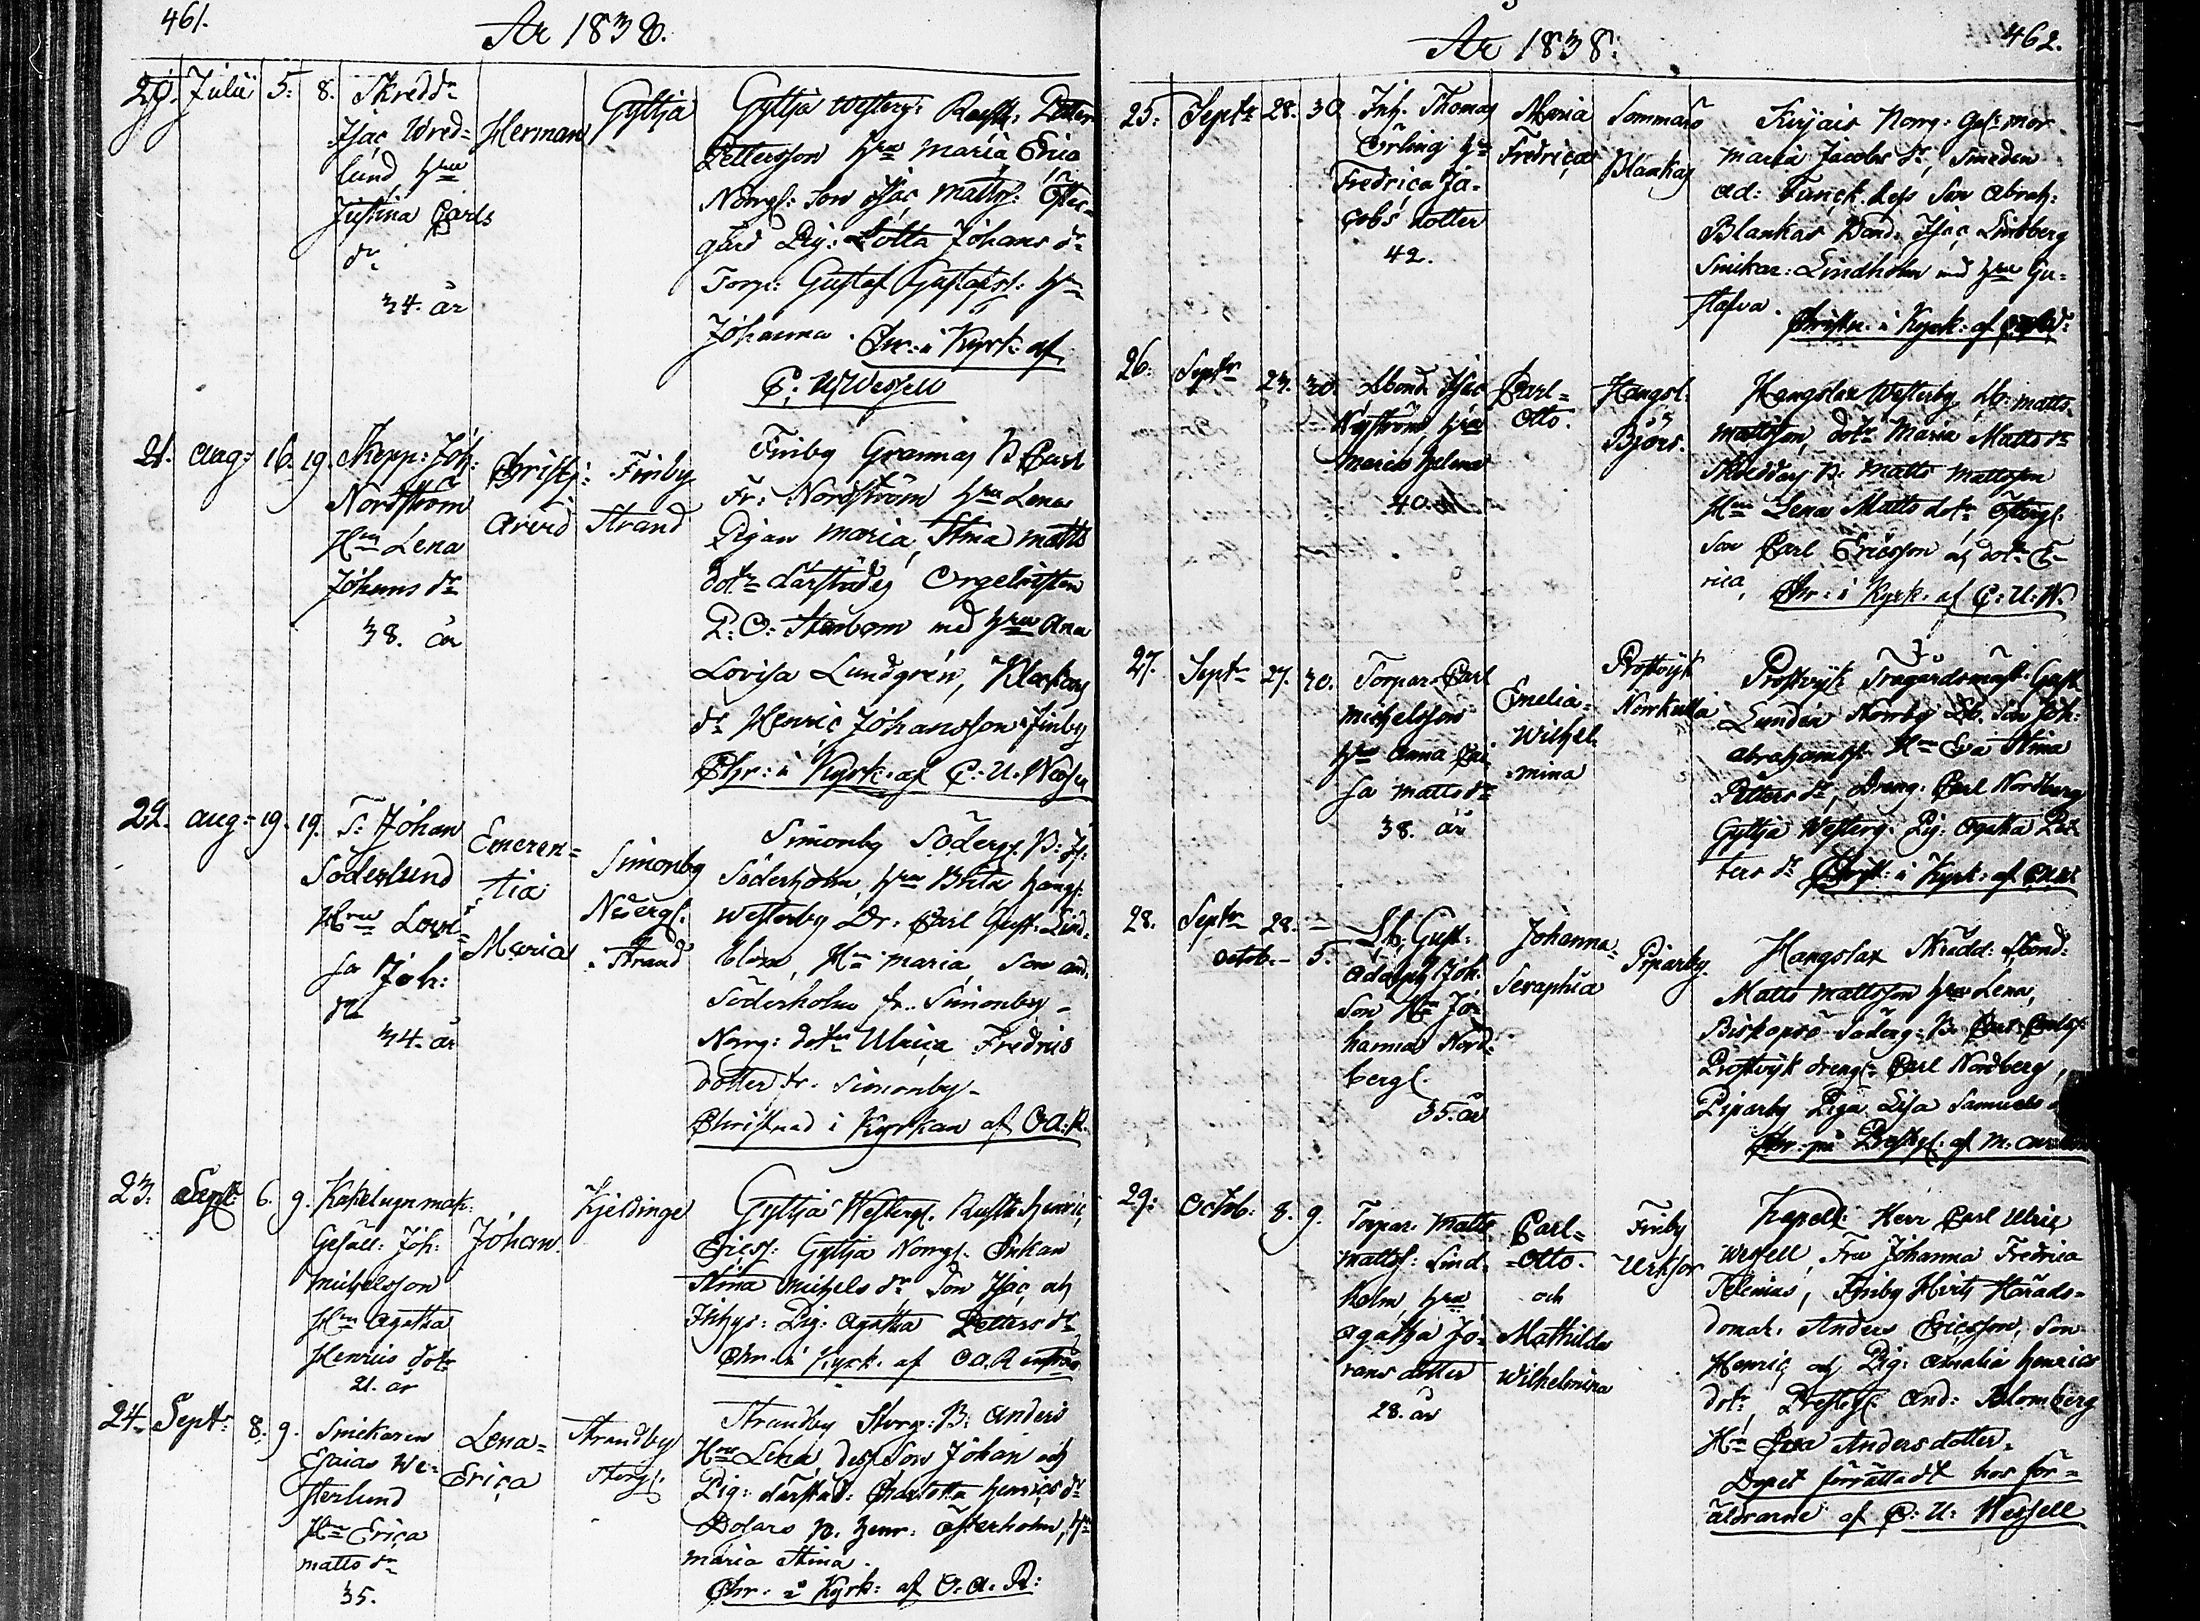 461.
År 1838.
20. Julii 5. 8. Skreddr
Isac Wred-
lund hru
Justina Carls
dr
34. år
Herman
Gyltja
Gyltja Westerg: Petter
Pettersson hru Maria Erica
Norrg: Son Isac Matts: Öster-
gård Pig: Lotta Johans dr
Torp: Gustaf Gustafss: hru
Johanna. Chr: i Kyrk: af
C: U Wessell
21. Aug: 16. 19. Skepp: Joh:
Nordström
Hru Lena
Johans dr
38. år
Christ:
Arvid
Finby
Strand
Finby Grannas B Carl
Fr: Nordström hru Lena
Pigan Maria Stina Matts
dotr därstädes Orgelnisten
P: O: Stenbom med hru Ana
Lovisa Lundgrén, Klockars
dr Henric Johansson Finby
Chr: i Kyrk: af C: U: Wess
22. Aug: 19. 19. S: Johan
Söderlund
Hru Lovi-
sa Joh:
dr
34. år
Emeren-
tia
Maria
Simonby
Nedergl.
Strand
Simonby Söderg. B:
Söderholm, hru Brita hangsl:
Westerby Dr: Carl Gust: Lind-
blom, Hru Maria, Son And.
Söderholm fr. Simonby-
Norrg: dotr Ulrica Fredrics
dotter fr. Simonby-
Christnad i Kyrkan af O A: R.
23. Sept: 6. 9. Kakelugnmak:
Gesäll: Joh:
Michelsson
Hru Agatha
Henrics dotr
21. år
Johan
Kjeldinge
Gyltja Westerg. Rustk: Henric
Ericss: Gyltja Norrg. Enkan
Stina Michels dr, Son Isac och
Inhys: Pig: Agatha Petters dr
Chr. i Kyrk. af O A. R
24. Septr 8. 9. Smickaren
Esaias We-
sterlund
Hru Erica
Matts dr
35.
Lena-
Erica
Strandby
Storgl.
Strandby Storg: B: Anders
Hru Lena, dess Son Johan och
Pig: därstäd: Charlotta Henrics dr
B. Henr: Österholm, hru
Maria Stina.
Chr. i Kyrk: af O. A. R:
År 1838.
462.
25. Septr 28. 30. Inh. Thomas
Örling hru
Fredrica Ja-
cobs dotter
42.
Maria
Fredrica
Sommarö
Blankas
Kirjais Norrg:
Maria Jacobs dr, Smeden
Ad: Funck. dess Son Abrah:
Blankas Isac Lindberg
Smickar: Lindholm med hru Gu-
stafva.
Christn: i Kyrk: af
26. Septr 23. 30. Lbond. Isac
Nyström hru
Maria Helena
40.
Carl-
Otto.
Hangsl.
Björs.
Hangslax Westerby Lb: Matts
Mattsson, dotr Maria Matts dr
Skreddars B: Matts Mattsson
Hru Lena Matts dotr Östergl:
Son Carl Ericsson och dotr E-
rica, Chr: i Kyrk: af C: U: W.
27. Septr 27. 30. Torpar. Carl
Michelsson
hru Anna Cai
sa Matts dr
38. år
Emelia-
Wilhel-
mina
Prostvik
Norrkulla
Prostvik Trägårdsmäst: Gust
Lundén Norrby Lb. Son Joh:
Abrahamss: Hru Eva Stina
Petters dr, Dreng: Carl Nordberg
Gyltja Westerg. Pig: Agatha Pet
ters dr Christ: i Kyrk: af
28. Septr 28. -
Octob. - 5. Lb. Gust:
Adolph Joh:
son Hru Jo-
hanna Nord-
bergl.
35. år
Johanna-
Seraphia
Piparby.
Hangslax Skredd: Lbond:
Matts Mattsson hru Lena,
Biskopsö Söderg: B:
Prostvik drengn Carl Nordberg,
Piparby Piga Lisa Samuels
Chr: på Prestgl: af M:
29. Octob: 8. 9. Torpar. Matts
Mattss: Lind-
holm, hru
Agatha Jö-
rans dotter
28. år
Carl-
-Otto.
och
Mathilda
Wilhelmina
Finby
Urksor
Kapell: Herr Carl Ulric
Wessell, Fru Johanna Fredrica
Telenius, Finby Hvits Härads-
domar. Anders Ericsson, Son
Henric och Pig: Amalia Henrics
dotr, Prestgl: And: Blomberg
Hru Caisa Anders dotter.
Dopet förrättadt hos för-
äldrarne af C: U: Wessell